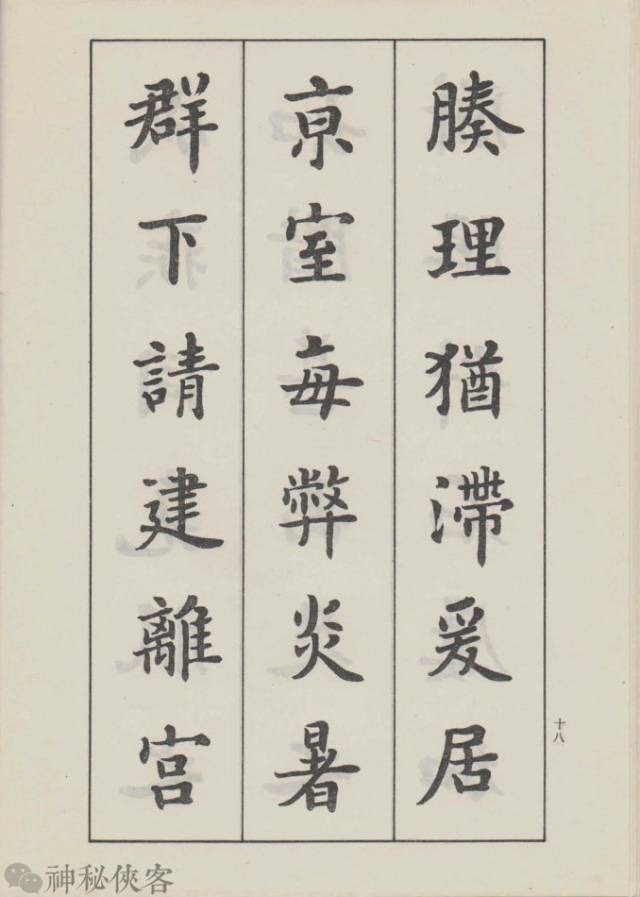 腠理猶滯爰居
京室每弊炎暑
群下請建離宮
十八
神秘侠客